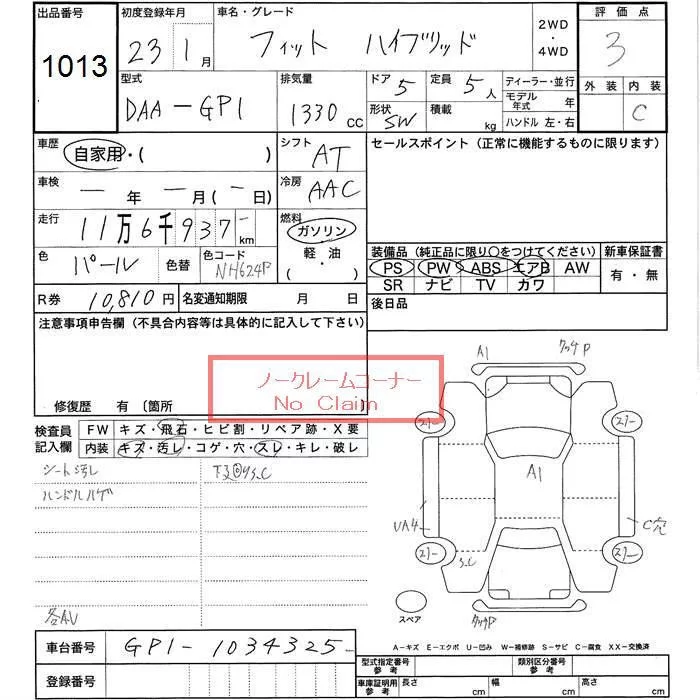 出品番号 初度登録年月 車名・グレード 2WD ・ 4WD 評価点
1013 23 1月 フィット ハイブリッド 3
型式 排気量 ドア 5 定員 5人 ディーラー・並行 外装 内装
DAA-GP1 1330 CC 形状 SW 積載 kg モデル年式 年 C
ハンドル 左・右
車歴 自家用・( ) シフト AT セールスポイント (正常に機能するものに限ります)
車検 ー年 ー月(ー日) 冷房 AAC
走行 11万6千937 km 燃料 ガソリン 軽・油 ( ・ )
色 パール 色替 色コード NH624P
装備品 (純正品に限り○をつけてください) 新車保証書
PS PW ABS エアB AW 有・無
SR ナビ TV カワ
R券 10,810円 名変通知期限 月 日 後日品
注意事項申告欄 (不具合内容等は具体的に記入して下さい)
ノークレームコーナー
No Claim
修復歴 有 〔箇所
検査員記入欄 FW キズ・飛石・ヒビ割・リペア跡・X要
内装 キズ・汚レ・コゲ・穴・スレ・キレ・破レ
シート汚レ
ハンドルハゲ
各AU
A1
A1
UA4
C穴
S.C
スペア
A−キズ E−エクボ U−凹み W−補修跡 S−サビ C−腐食 XX−交換済
車台番号 GP1-1034325
登録番号
型式指定番号 参考 類別区分番号 参考
車庫証明用 参考 長さ cm 幅 cm 高さ cm